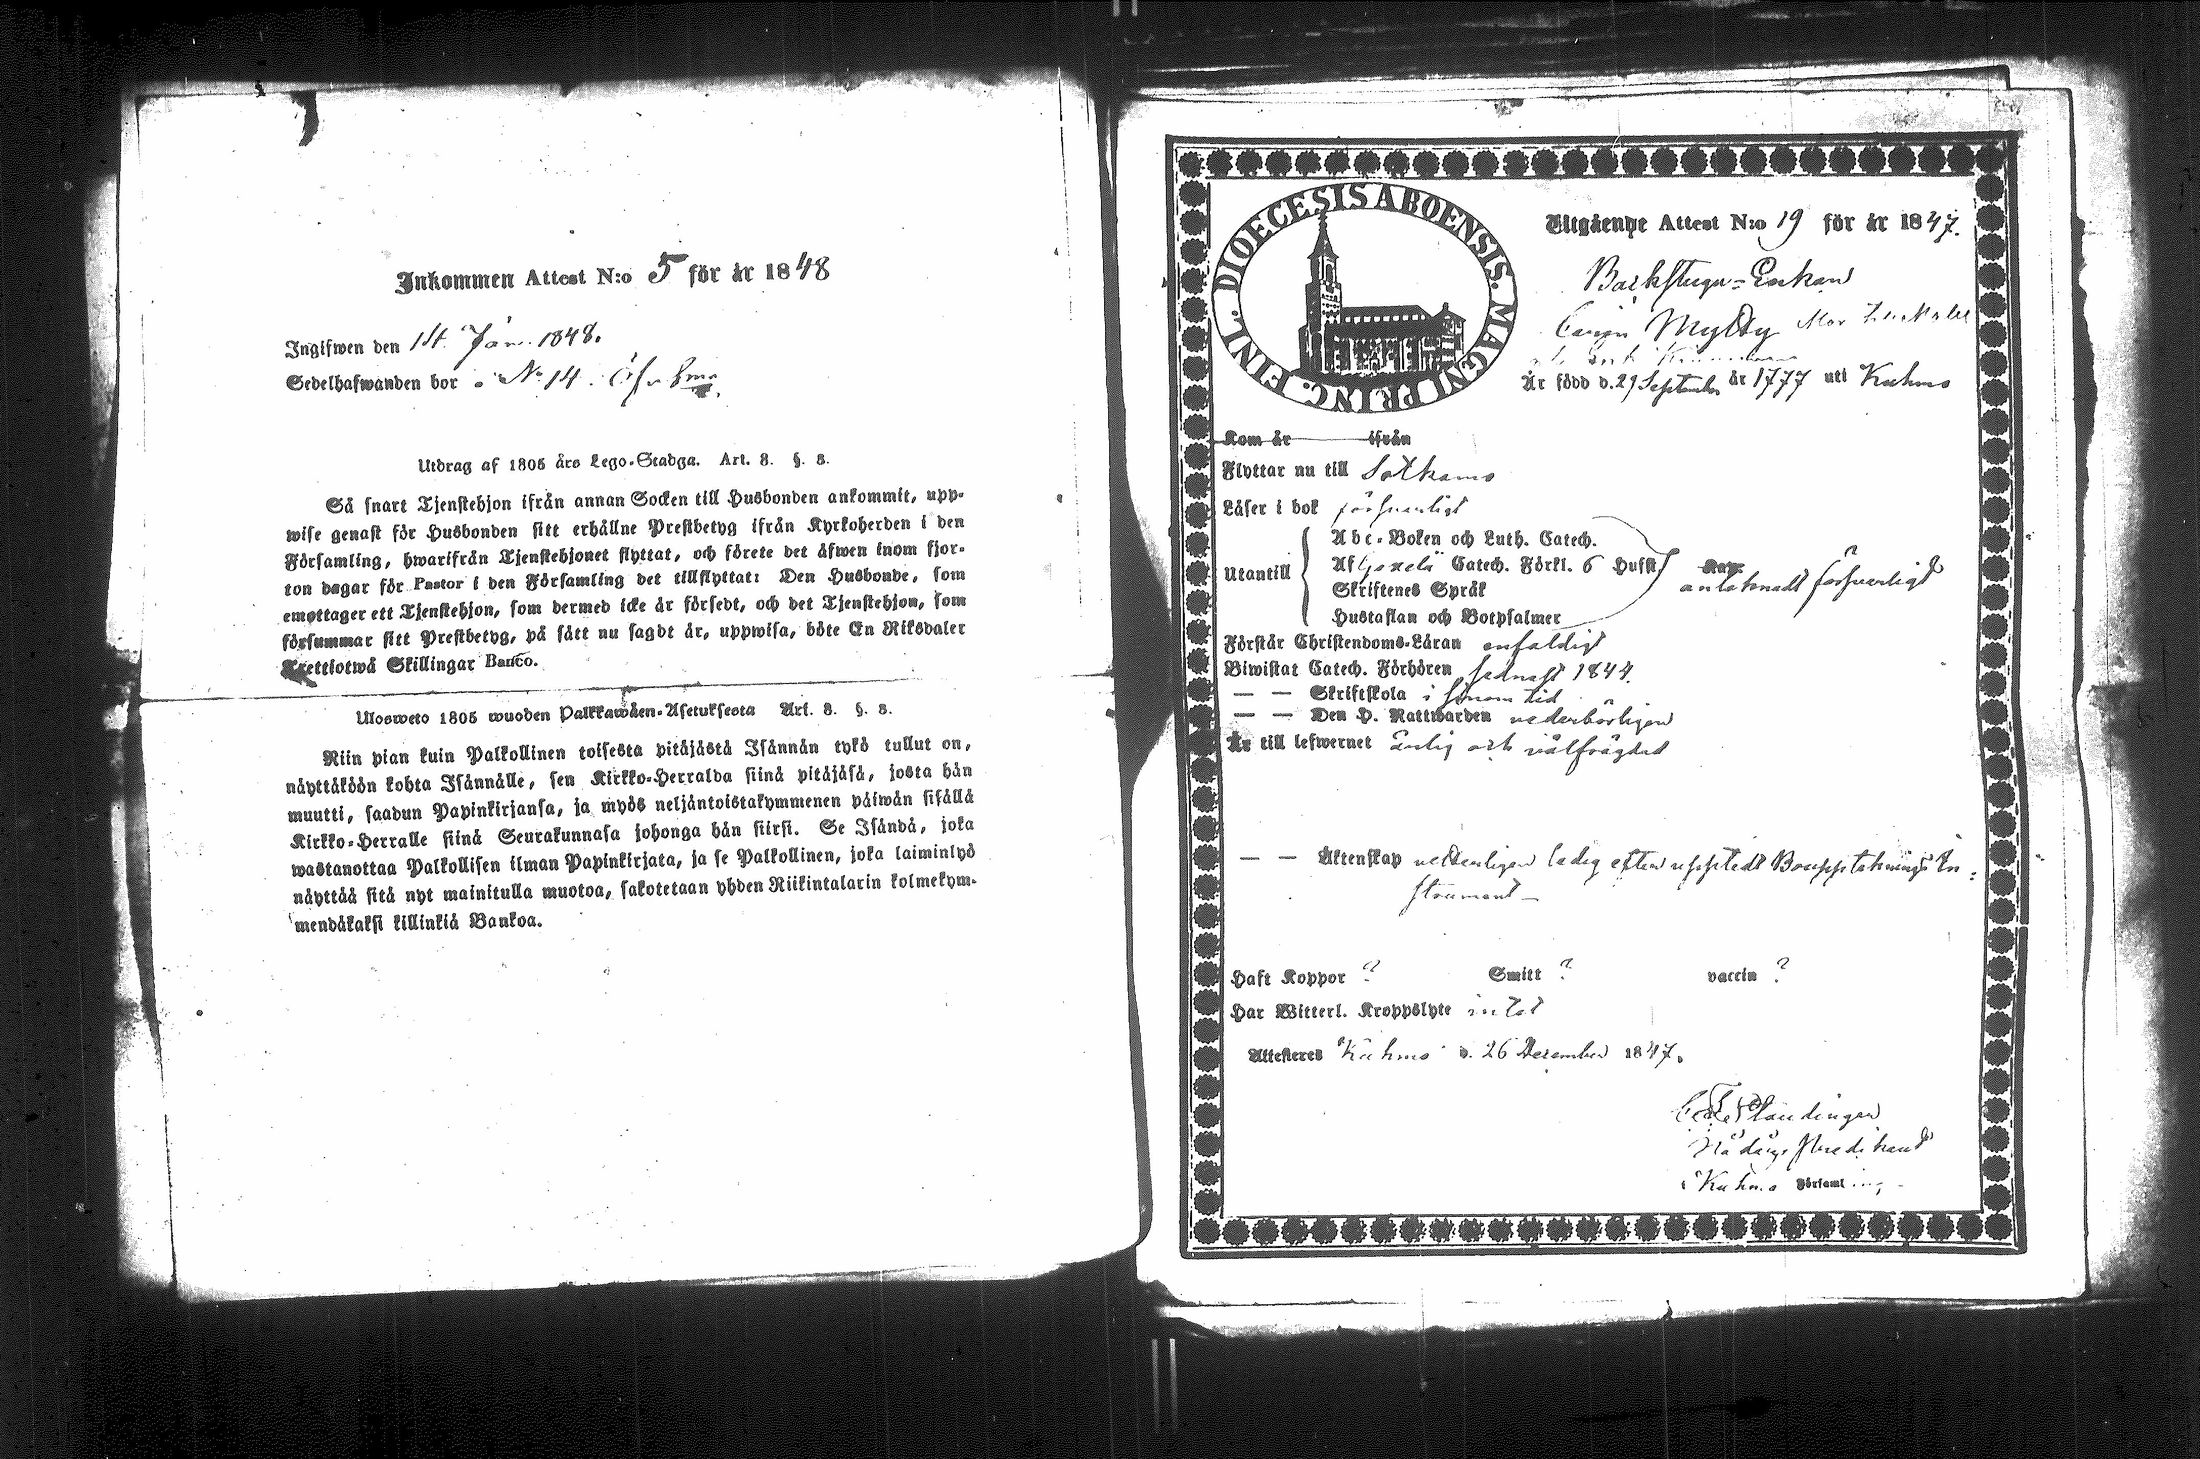 Inkommen Attest N:o 5 för år 1848
Ingifwen den 14 Jan. 1848.
Sedelhafwanden bor å No 14
Utdrag af 1805 års Lego-Stadga. Art. 8. §. 8.
Så snart Tjenstehjon ifrån annan Socken till Husbonden ankommit, upp-
wise genast för Husbonden sitt erhållne Prestbetyg ifrån Kyrkoherden i den
Församling, hwarifrån Tjenstehjonet flyttat, och förete det äfwen inom fjor-
ton dagar för Pastor i den Församling det tillflyttat: Den Husbonde, som
emottager ett Tjenstehjon, som dermed icke är försedt, och det Tjenstehjon, som
försummar sitt Prestbetyg, på sätt nu sagdt är, uppwisa, böte En Riksdaler
Trettiotwå Skillingar Banco.
Ulosweto 1805 wuoden Palkkawäen-Asetuksesta Art. 8. §. 8.
Niin pian kuin Palkollinen toisesta pitäjästä Isännän tykö tullut on,
näyttäköön kohta Isännälle, sen Kirkko-Herralda siinä pitäjäsä, josta hän
muutti, saadun Papinkirjansa, ja myös neljäntoistakymmenen päiwän sisällä
Kirkko-Herralle siinä Seurakunnasa johonga hän siirsi. Se Isändä, joka
wastanottaa Palkollisen ilman Papinkirjata, ja se Palkollinen, joka laiminlyö
näyttää sitä nyt mainitulla muotoa, sakotetaan yhden Riikintalarin kolmekym-
mendäkaksi killinkiä Bankoa.
DIOECESIS ABOENSIS. MAGNI PRINC. FINL.
Utgående Attest N:o 19 för år 1847.
Backstugu-Enkan
Carin Mylly
Är född d. 29 September år 1777 uti Kuhmo
Kom år ifrån
Flyttar nu till Sotkamo
Läser i bok försvarligt
Utantill
Abc-Boken och Luth. Catech.
Af Gezelii Catech. Förkl. 6 Hufst
Skriftenes Språk
Hustaflan och Botpsalmer
anteknadt försvarligt
Förstår Christendoms-Läran enfaldigt
Biwistat Catech. Förhören sednast 1844.
— — Skriftskola i sinom tid
— — Den H. Nattwarden vederbörligen
Är till lefwernet ärlig och välfrägdad
— — Äktenskap vederligen ledig efter uppstedt Bouppteknings In-
strument —
Haft Koppor ? Smitt ? vaccin ?
Har Witterl. Kroppslyte intet
Attesteras Kuhmo d. 26 December 1847.
Nådårs Predikant
i Kuhmo Församl